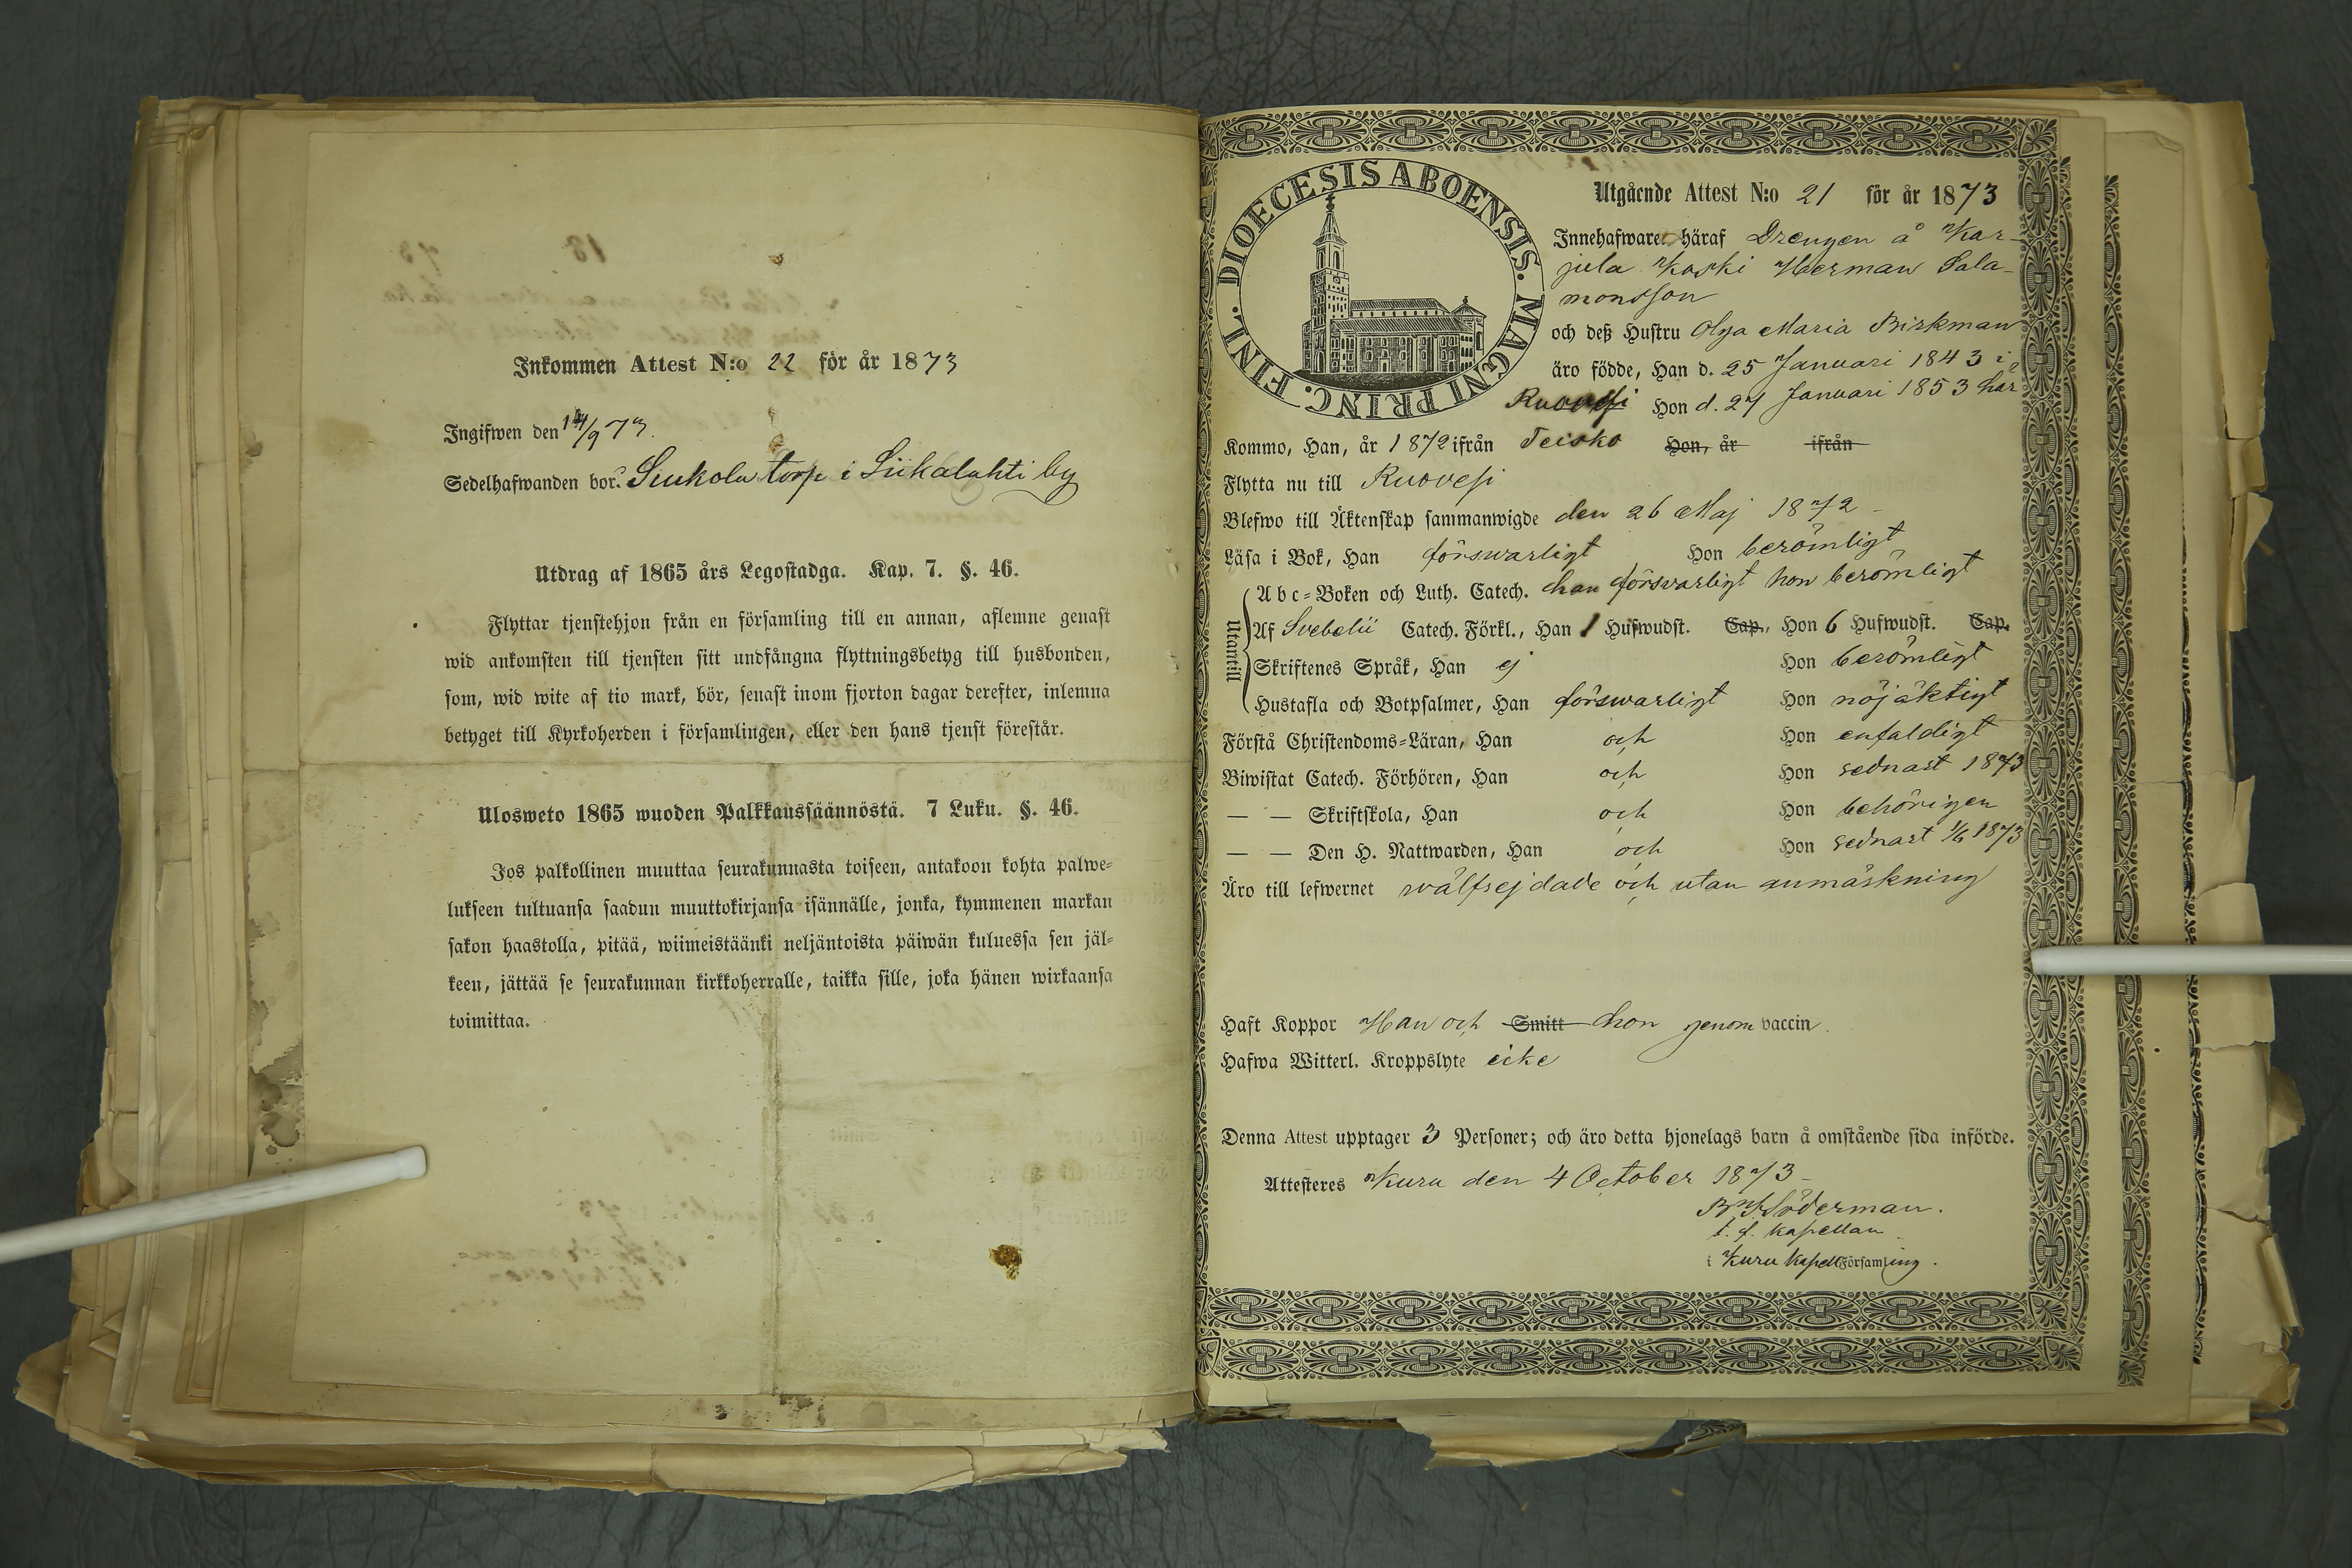 Inkommen Attest N:o 22 för år 1873
Ingifwen den 14/9 73.
Sedelhafwanden bor: Siukola torp i Siikalahti by
Utdrag af 1865 års Legostadga. Kap. 7. §. 46.
Flyttar tjenstehjon från en församling till en annan, aflemne genast
wid ankomsten till tjensten sitt undfångna flyttningsbetyg till husbonden,
som, wid wite af tio mark, bör, senast inom fjorton dagar derefter, inlemna
betyget till Kyrkoherden i församlingen, eller den hans tjenst förestår.
Ulosweto 1865 wuoden Palkkaussäännöstä. 7 Luku. §. 46.
Jos palkollinen muuttaa seurakunnasta toiseen, antakoon kohta palwe=
lukseen tultuansa saadun muuttokirjansa isännälle, jonka, kymmenen markan
sakon haastolla, pitää, wiimeistäänki neljäntoista päiwän kuluessa sen jäl=
keen, jättää se seurakunnan kirkkoherralle, taikka sille, joka hänen wirkaansa
toimittaa.
DIOECESIS ABOENSIS. MAGNI PRINC. FINL.
Utgående Attest N:o 21 för år 1873
Innehafware häraf Drengen å Kar-
jula Koski Herman Sala-
monsson
och deß Hustru Olga Maria Birkman
äro födde, Han d. 25 Januari 1843 i
Ruovesi Hon d. 27 Januari 1853 här
Kommo, Han, år 1872 ifrån Teisko Hon, år ifrån
Flytta nu till Ruovesi
Blefwo till Äktenskap sammanwigde den 26 Maj 1872
Läsa i Bok, Han försvarligt Hon berömligt
Utantill
Abc=Boken och Luth. Catech. han försvarligt hon berömligt
Af Svebelii Catech. Förkl., Han 1 Hufwudst. Cap., Hon 6 Hufwudst. Cap.
Skriftenes Språk, Han ej Hon berömligt
Hustafla och Botpsalmer, Han försvarligt Hon nöjaktigt
Förstå Christendoms=Läran, Han och Hon enfaldigt
Biwistat Catech. Förhören, Han och Hon sednast 1873
— — Skriftskola, Han och Hon behörigen
— — Den H. Nattwarden, Han och Hon sednast 1/6 1873
Äro till lefwernet wälfrejdade och utan anmärkning
Haft Koppor Han och Smitt hon genom vaccin.
Hafwa Witterl. Kroppslyte icke
Denna Attest upptager 3 Personer; och äro detta hjonelags barn å omstående sida införde.
Attesteres Kuru den 4 October 1873
Söderman.
t. f. kapellan
i Kuru KapellFörsamling.